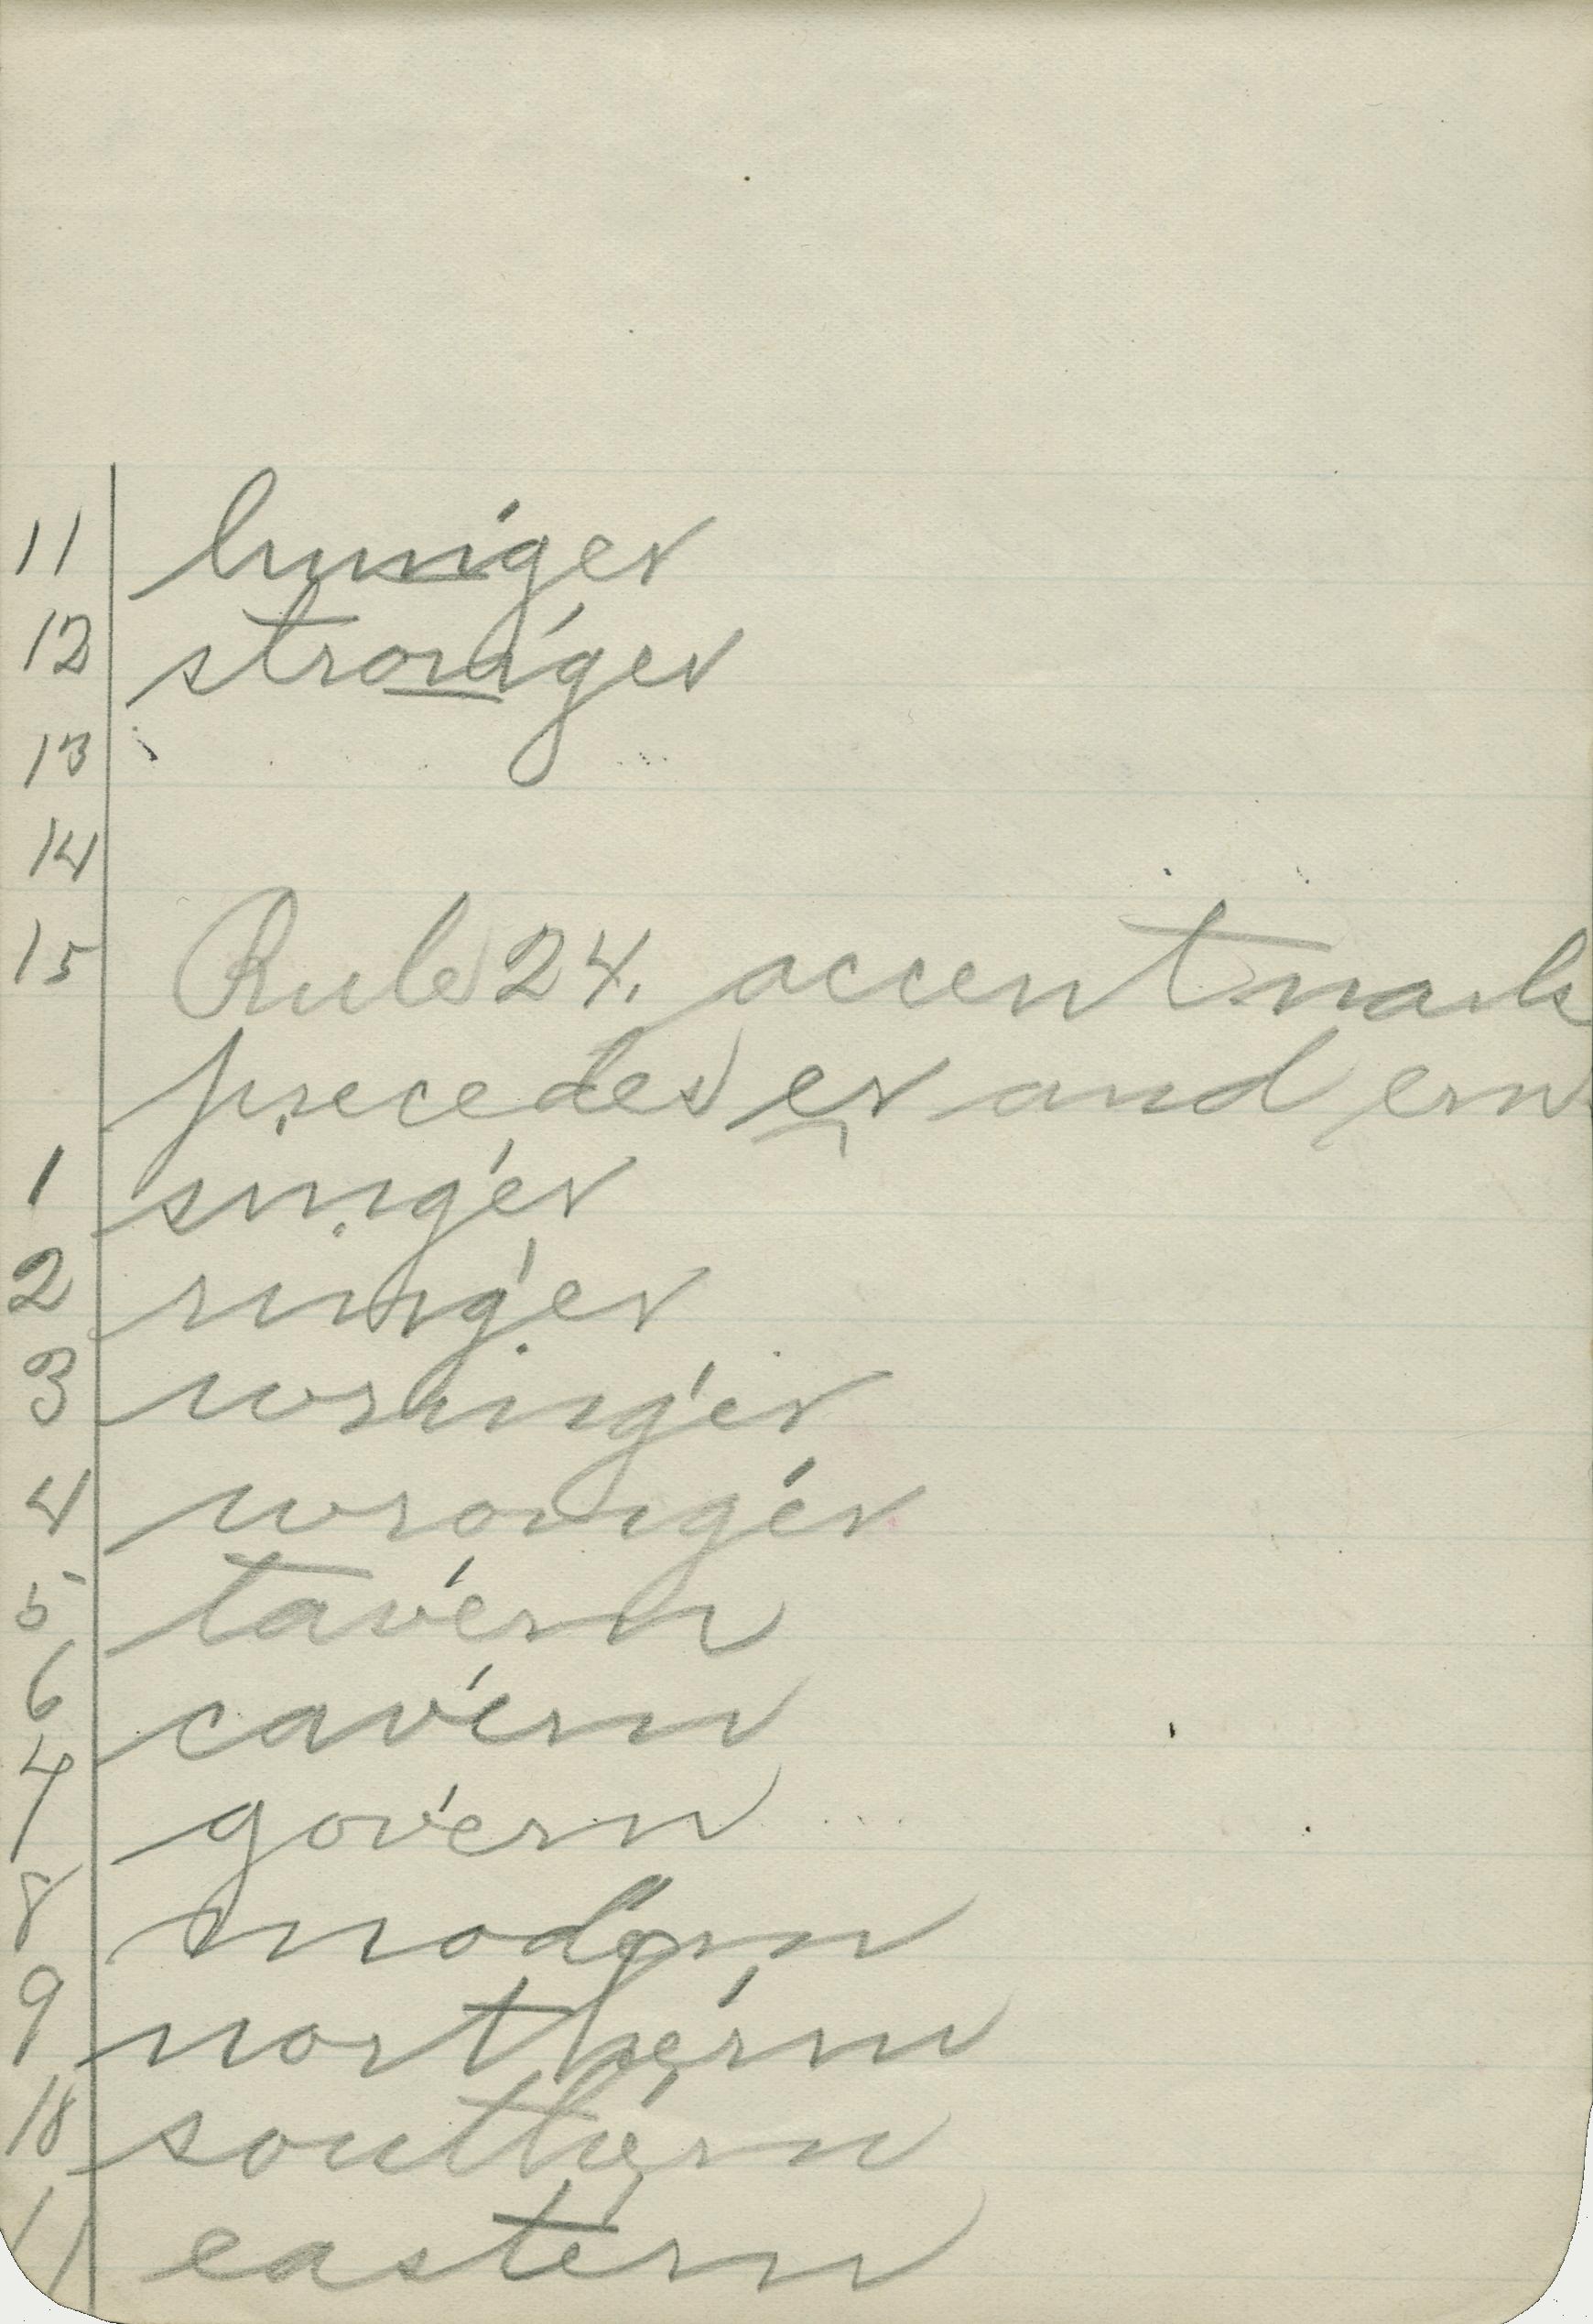 11 huni'ger
12 stron'ger
13
14
15 Rule 24. accent mark
precedes er and ern
1 sing'er
2 ring'er
3 wring'er
4 wrong'er
5 tav'ern
6 cav'ern
7 gov'ern
8 mod'ern
9 north'ern
10 south'ern
11 east'ern